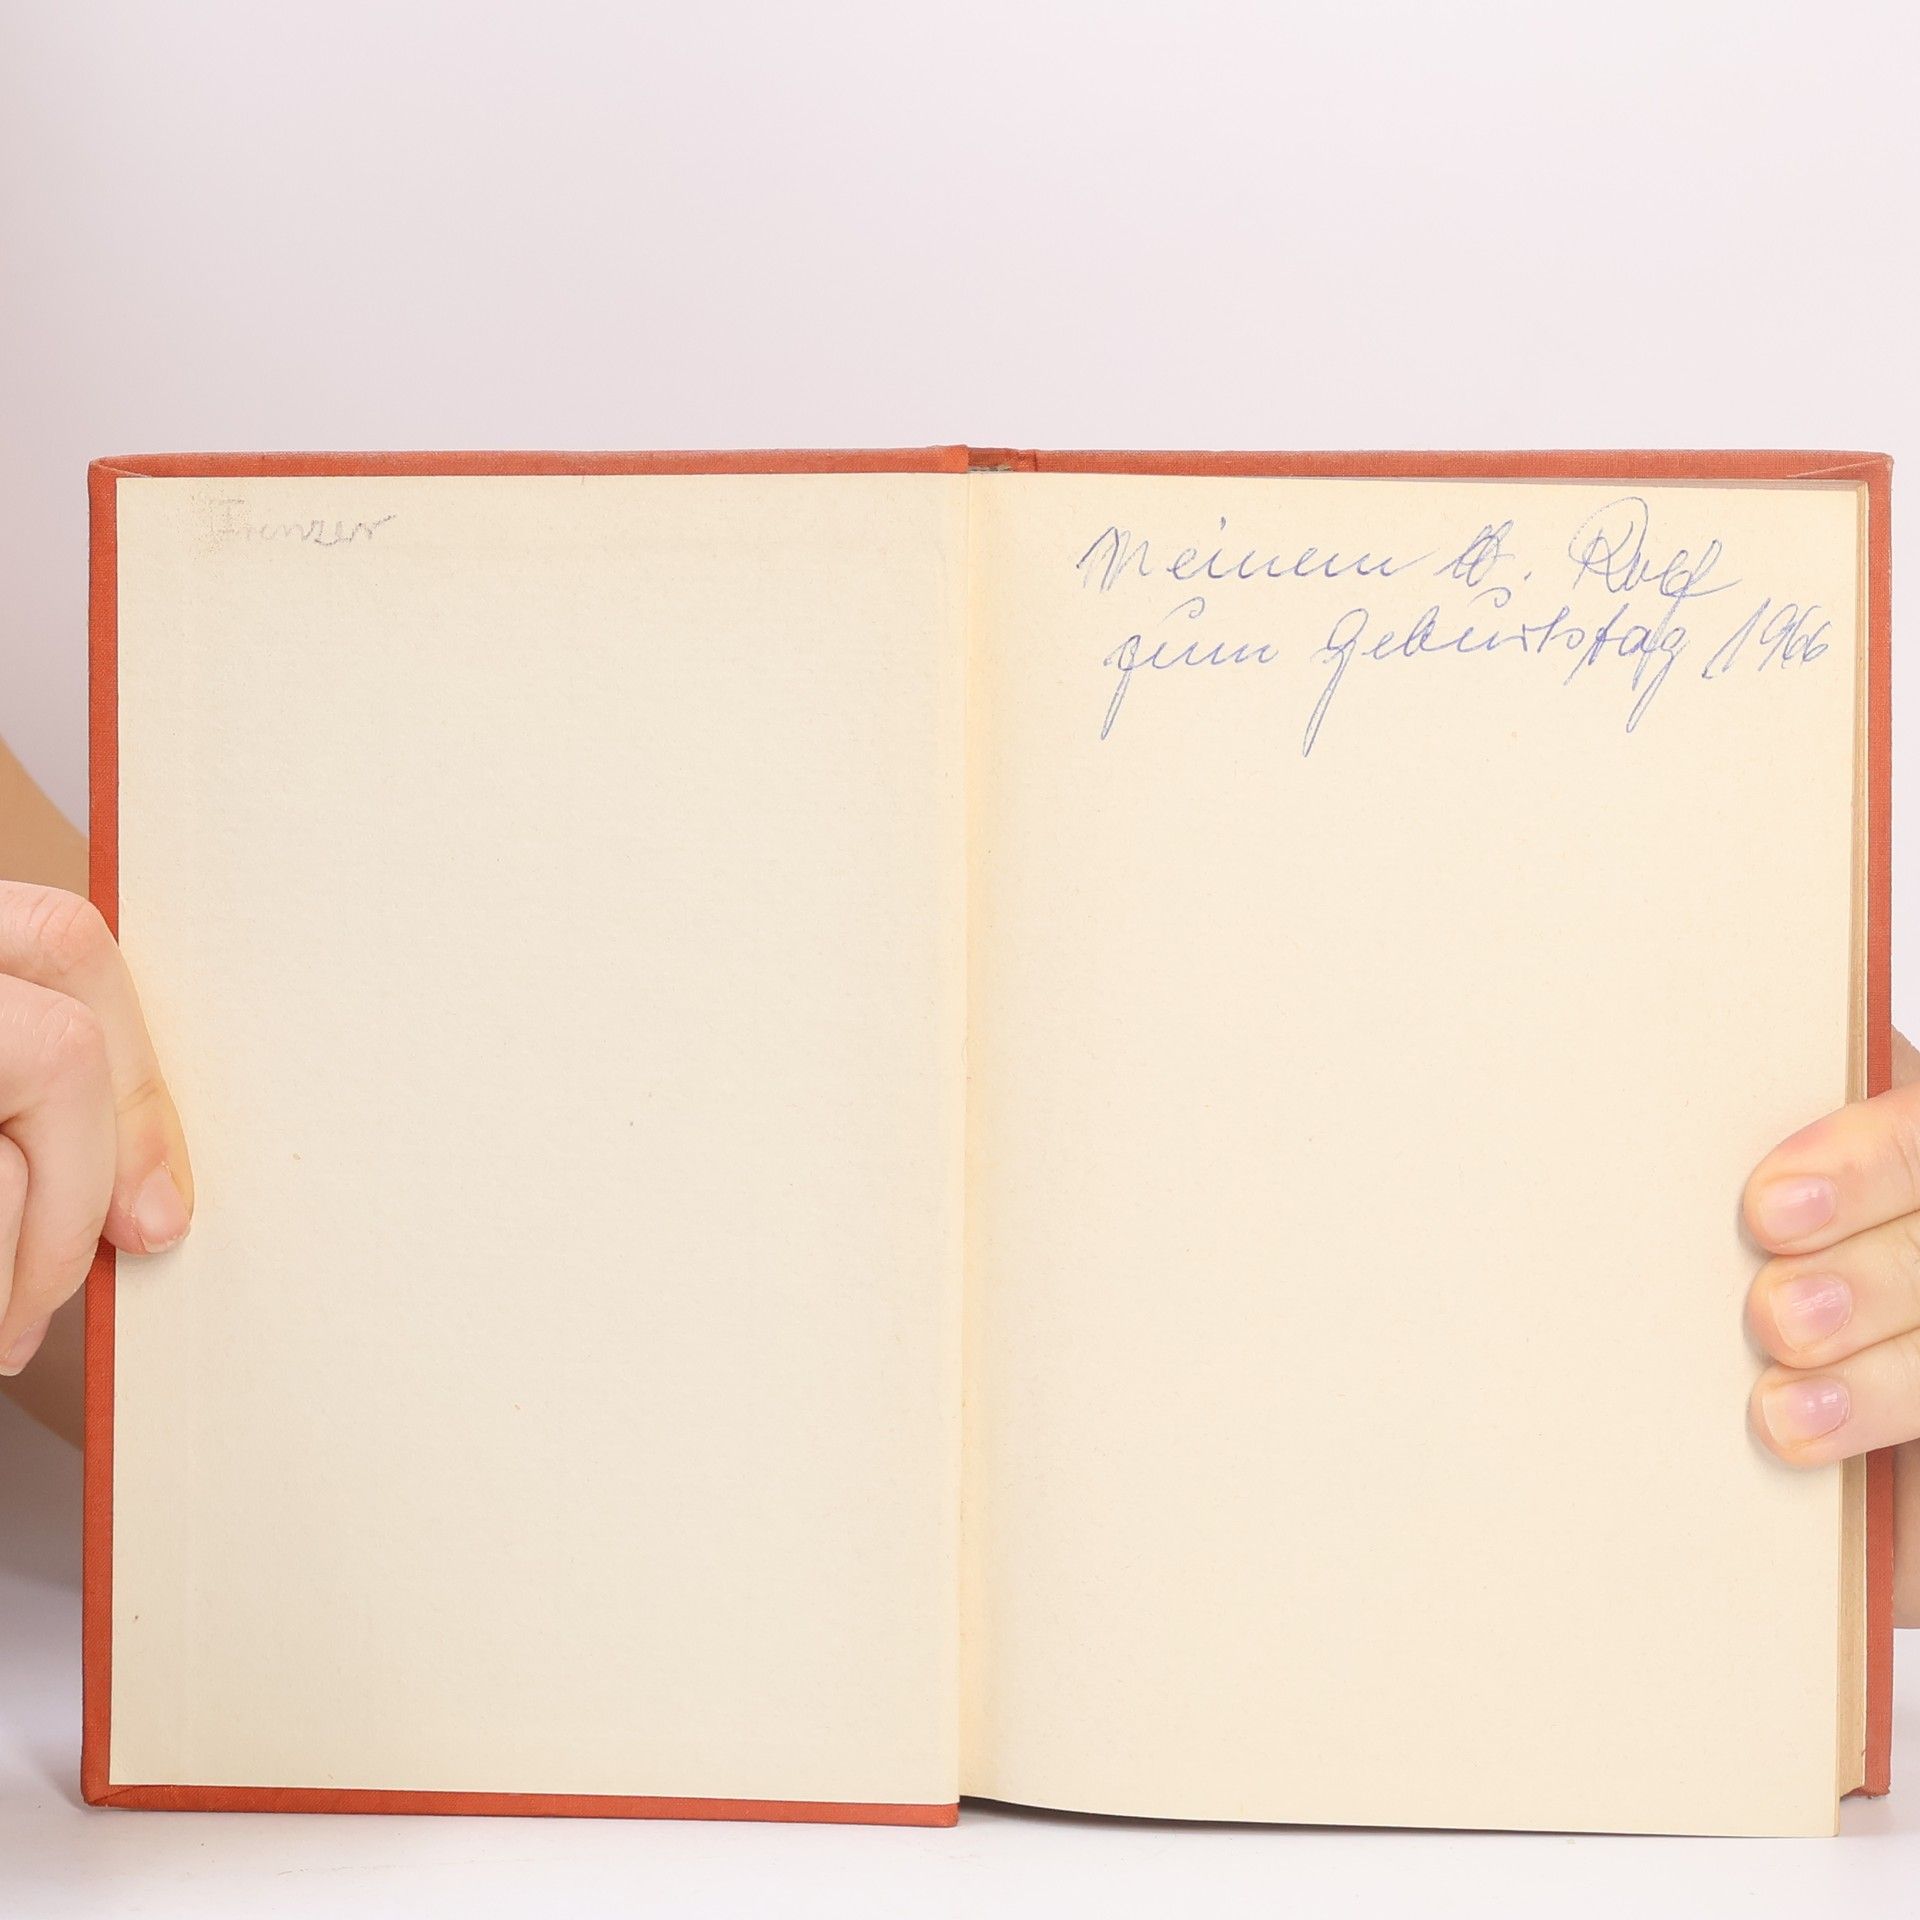 Meinem lb. Rolf
zum Geburtstag 1966